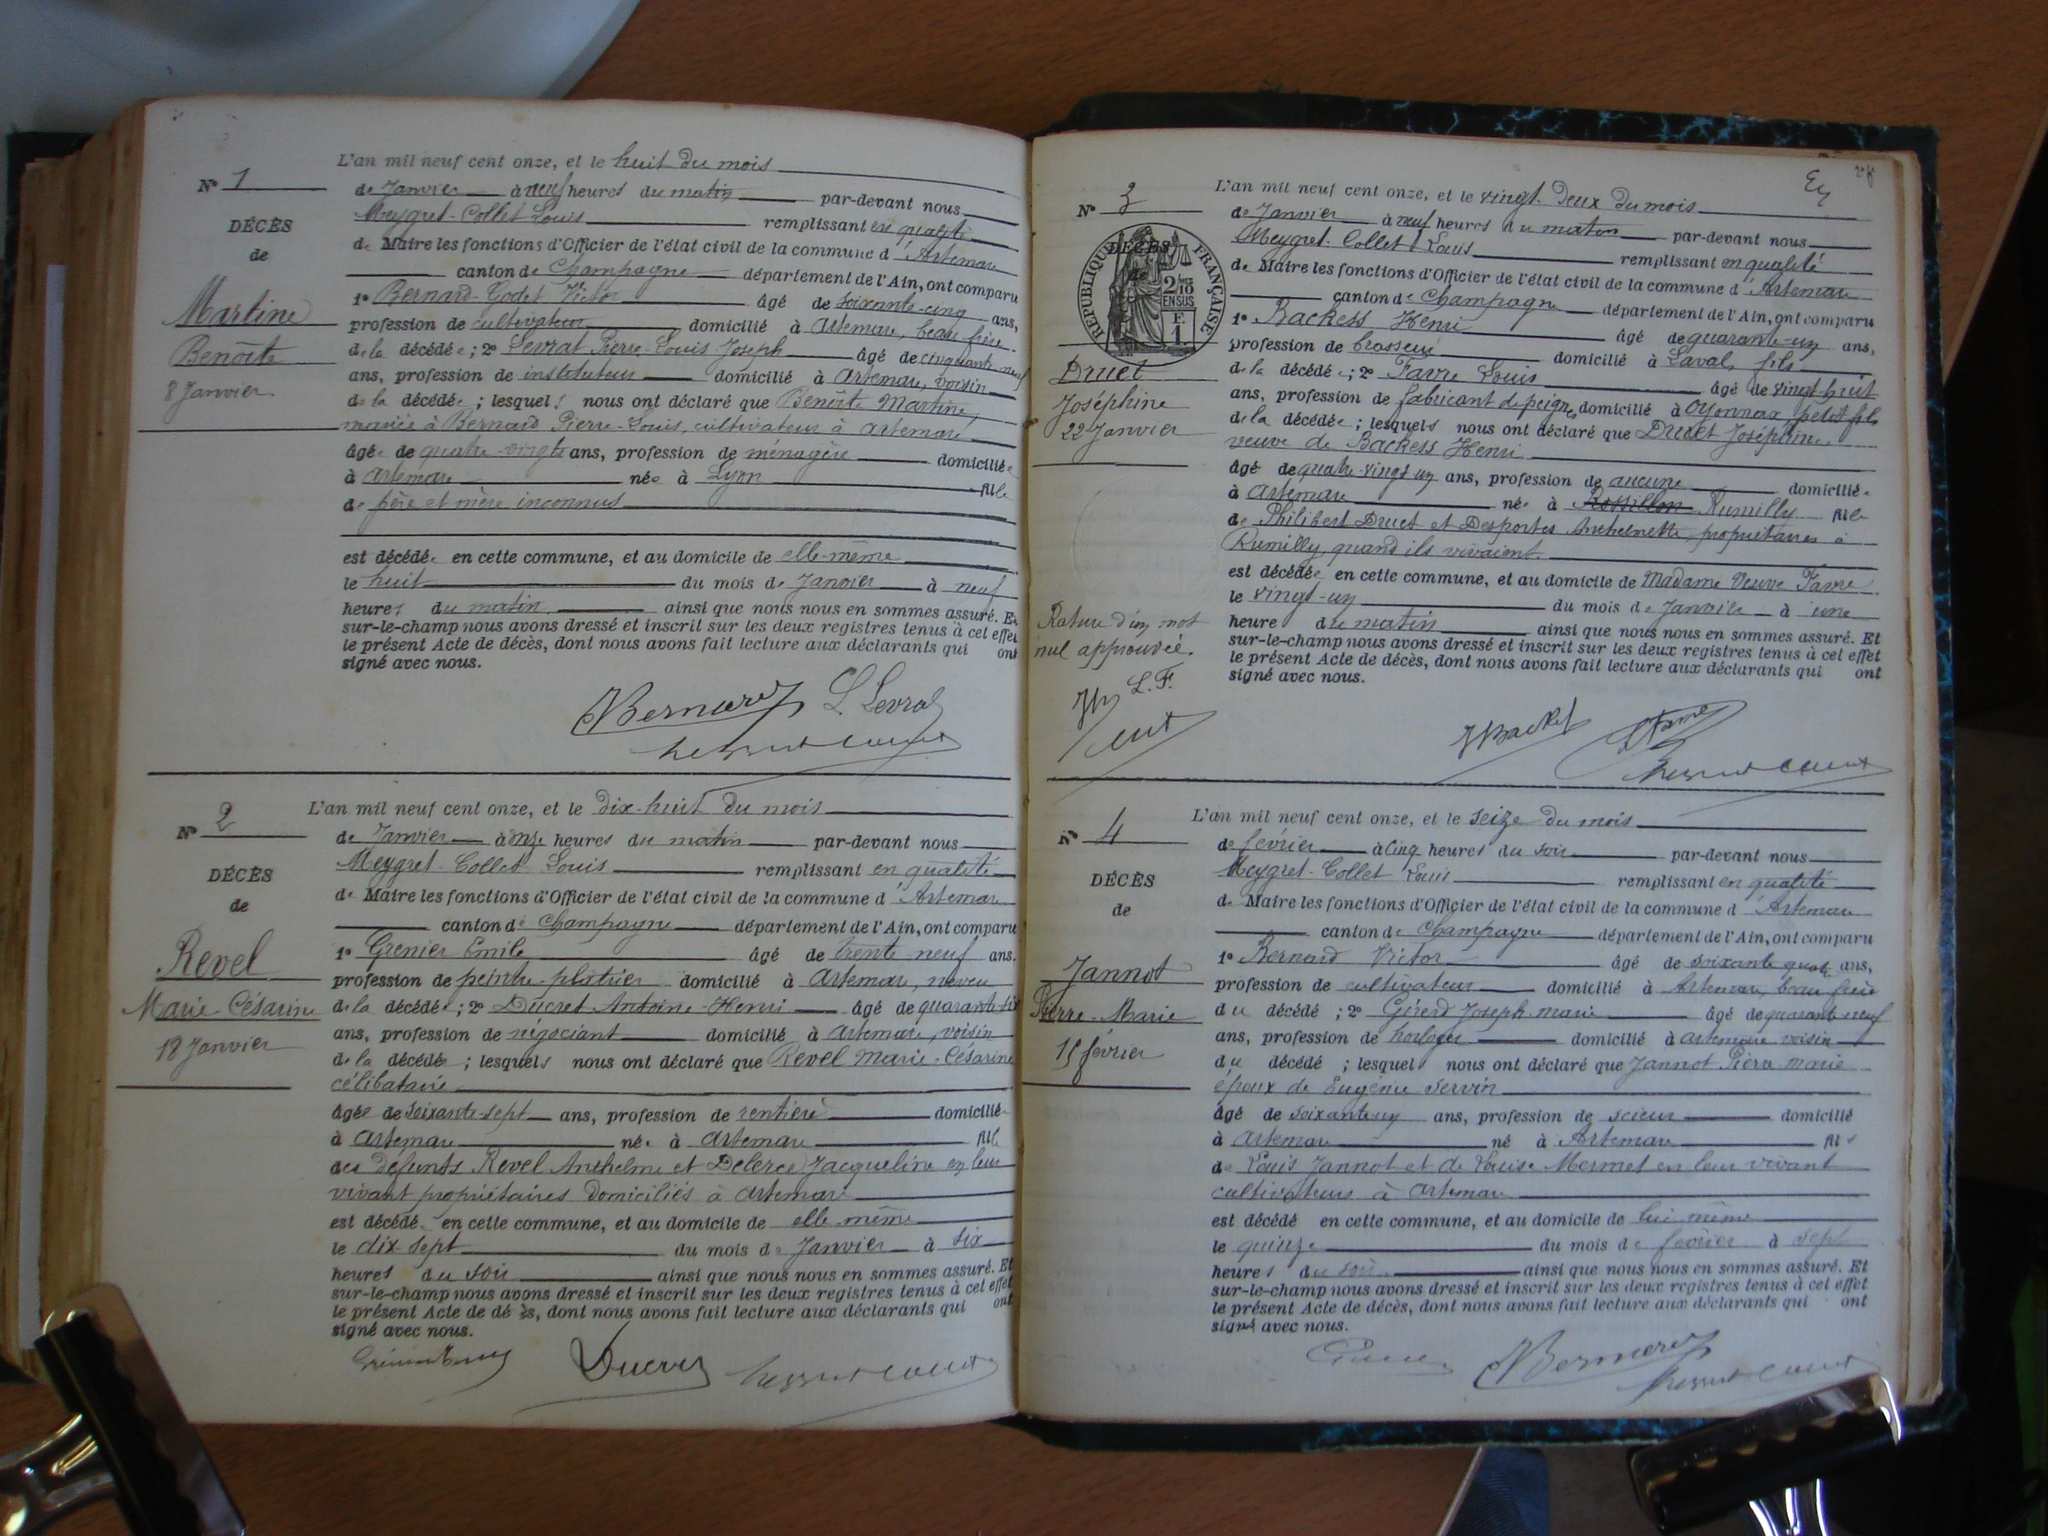 N° 1
DÉCÈS
de
Martine
Benoîte
8 Janvier
L'an mil neuf cent onze, et le huit du mois
de Janvier à neuf heures du matin par-devant nous
Meygret-Collet Louis remplissant en qualité
de Maire les fonctions d'Officier de l'état civil de la commune d'Artemare
canton de Champagne département de l'Ain, ont comparu
1° Bernard-Godet Victor âgé de soixante-cinq ans,
profession de cultivateur domicilié à Artemare, beau frère
de la décédée ; 2° Levrat Pierre-Louis Joseph âgé de cinquante neuf
ans, profession de instituteur domicilié à Artemare, voisin
de la décédée ; lesquels nous ont déclaré que Benoîte Martine,
mariée à Bernard Pierre-Louis, cultivateur à Artemare
âgée de quatre-vingts ans, profession de ménagère domiciliée
à Artemare née à Lyon fille
de père et mère inconnus
est décédée en cette commune, et au domicile de elle-même
le huit du mois de Janvier à neuf
heures du matin ainsi que nous nous en sommes assuré. Et
sur-le-champ nous avons dressé et inscrit sur les deux registres tenus à cet effet
le présent Acte de décès, dont nous avons fait lecture aux déclarants qui ont
signé avec nous.
VBernard L. Levrat
N° 2
DÉCÈS
de
Revel
Marie-Césarine
18 Janvier
L'an mil neuf cent onze, et le dix-huit du mois
de Janvier à onze heures du matin par-devant nous
Meygret-Collet Louis remplissant en qualité
de Maire les fonctions d'Officier de l'état civil de la commune d'Artemare
canton de Champagne département de l'Ain, ont comparu
1° Grenier Emile âgé de trente neuf ans.
profession de peintre-plâtrier domicilié à Artemare, neveu
de la décédée ; 2° Ducret Antoine-Henri âgé de quarante-six
ans, profession de négociant domicilié à Artemare, voisin
de la décédée ; lesquels nous ont déclaré que Revel Marie-Césarine
célibataire
âgée de soixante-sept ans, profession de rentière domiciliée
à Artemare née à Artemare fille
des défunts Revel Anthelme et Delerce Jacqueline en leur
vivant propriétaires domiciliés à Artemare
est décédé en cette commune, et au domicile de elle-même
le dix-sept du mois de Janvier à six
heures du soir ainsi que nous nous en sommes assuré. Et
sur-le-champ nous avons dressé et inscrit sur les deux registres tenus à cet effet
le présent Acte de dé ès, dont nous avons fait lecture aux déclarants qui ont
signé avec nous.
Ducret
N° 3
DÉCÈS
de
RÉPUBLIQUE FRANÇAISE
2/10
EN SUS
F.
1
Druet
Joséphine
22 Janvier
L'an mil neuf cent onze, et le vingt-deux du mois
de Janvier à neuf heures du matin par-devant nous
Meygret-Collet Louis remplissant en qualité
de Maire les fonctions d'Officier de l'état civil de la commune d'Artemare
canton de Champagne département de l'Ain, ont comparu
1° Backess Henri âgé de quarante-un ans,
profession de brasseur domicilié à Laval, fils
de la décédée ; 2° Favre Louis âgé de vingt huit
ans, profession de fabricant de peignes domicilié à Oyonnax petit fils
de la décédée ; lesquels nous ont déclaré que Druet Joséphine
veuve de Backess Henri
âgé de quatre-vingt-un ans, profession de aucune domiciliée
à Artemare née à Rossillon Rumilly fille
de Philibert Druet et Desportes Anthelmette propriétaires à
Rumilly, quand ils vivaient
est décédée en cette commune, et au domicile de Madame Veuve Favre
le vingt-un du mois de Janvier à une
heure du matin ainsi que nous nous en sommes assuré. Et
sur-le-champ nous avons dressé et inscrit sur les deux registres tenus à cet effet
le présent Acte de décès, dont nous avons fait lecture aux déclarants qui ont
signé avec nous.
Rature d'un mot
nul approuvée.
L. F.
N° 4
DÉCÈS
de
Jannot
Pierre-Marie
15 février
L'an mil neuf cent onze, et le seize du mois
de février à cinq heures du soir par-devant nous
Meygret-Collet Louis remplissant en qualité
de Maire les fonctions d'Officier de l'état civil de la commune d'Artemare
canton de Champagne département de l'Ain, ont comparu
1° Bernard Victor âgé de soixante quatre ans,
profession de cultivateur domicilié à Artemare, beau frère
du décédé ; 2° Gérard Joseph-marie âgé de quarante neuf
ans, profession de horloger domicilié à Artemare voisin
du décédé ; lesquels nous ont déclaré que Jannot Pierre marie
époux de Eugénie Servin
âgé de soixante-un ans, profession de scieur domicilié
à Artemare né à Artemare fils
de Louis Jannot et de Louise Mermet en leur vivant
cultivateurs à Artemare
est décédé en cette commune, et au domicile de lui-même
le quinze du mois de février à sept
heures du soir ainsi que nous nous en sommes assuré. Et
sur-le-champ nous avons dressé et inscrit sur les deux registres tenus à cet effet
le présent Acte de décès, dont nous avons fait lecture aux déclarants qui ont
signé avec nous.
VBernard